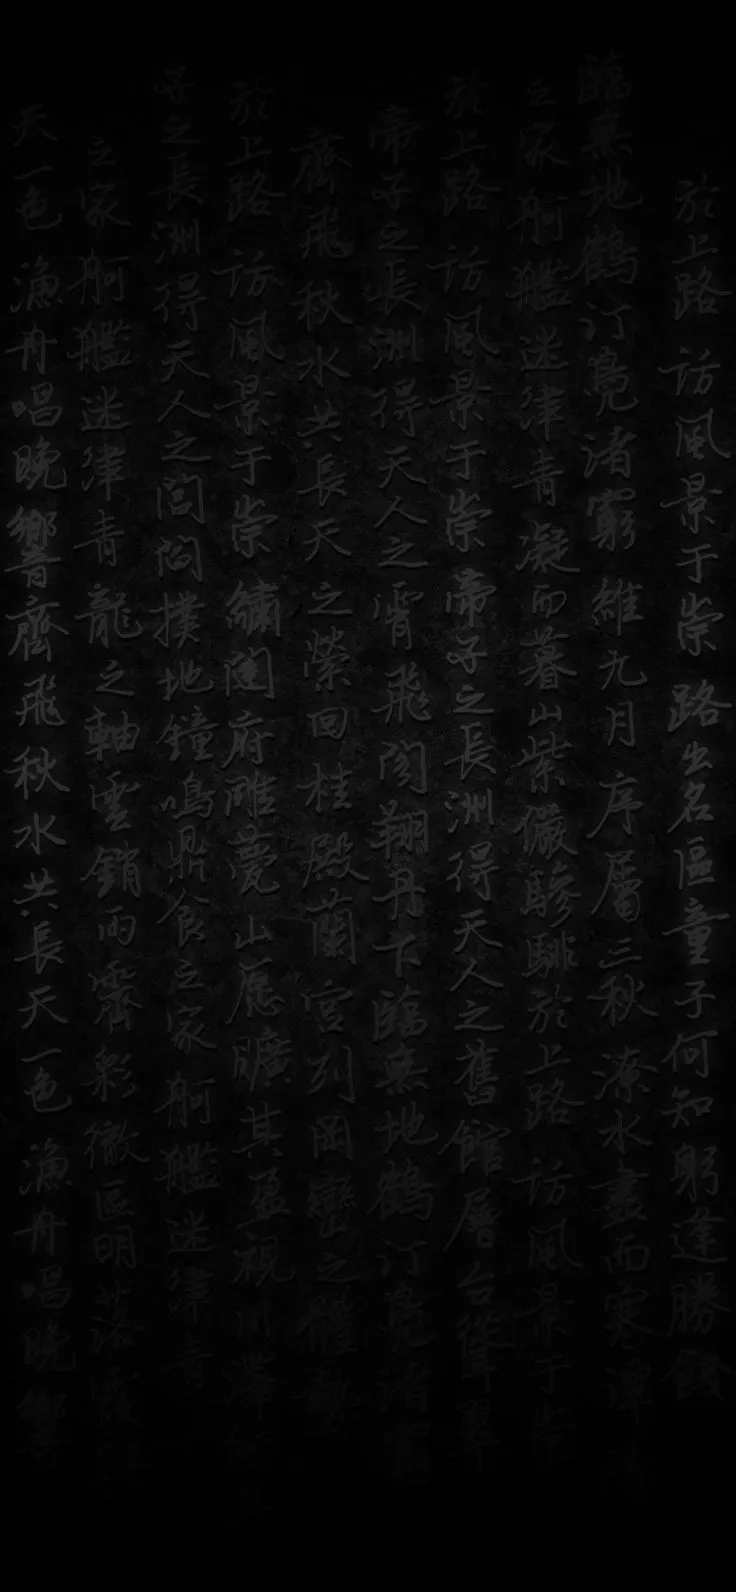 於上路訪風景于崇路出名區童子何知躬逢勝餞
臨無地鶴汀鳧渚窮維九月序屬三秋潦水盡而寒潭
之家舸艦迷津青凝而暮山紫儼驂騑於上路訪風景于崇
於上路訪風景于崇帝子之長洲得天人之舊館層台從聳翠
帝子之長洲得天人之霄飛閣翔丹下臨無地鶴汀鳧渚
齊飛秋水共長天之縈回桂殿蘭宮列岡巒之體勢
於上路訪風景于崇繡闥府雕甍山原曠其盈視川澤
子之長洲得天人之閭閻撲地鐘鳴鼎食之家舸艦迷津青
之家舸艦迷津青龍之軸雲銷雨霽彩徹區明落霞
天一色漁舟唱晚響齊飛秋水共長天一色漁舟唱晚響